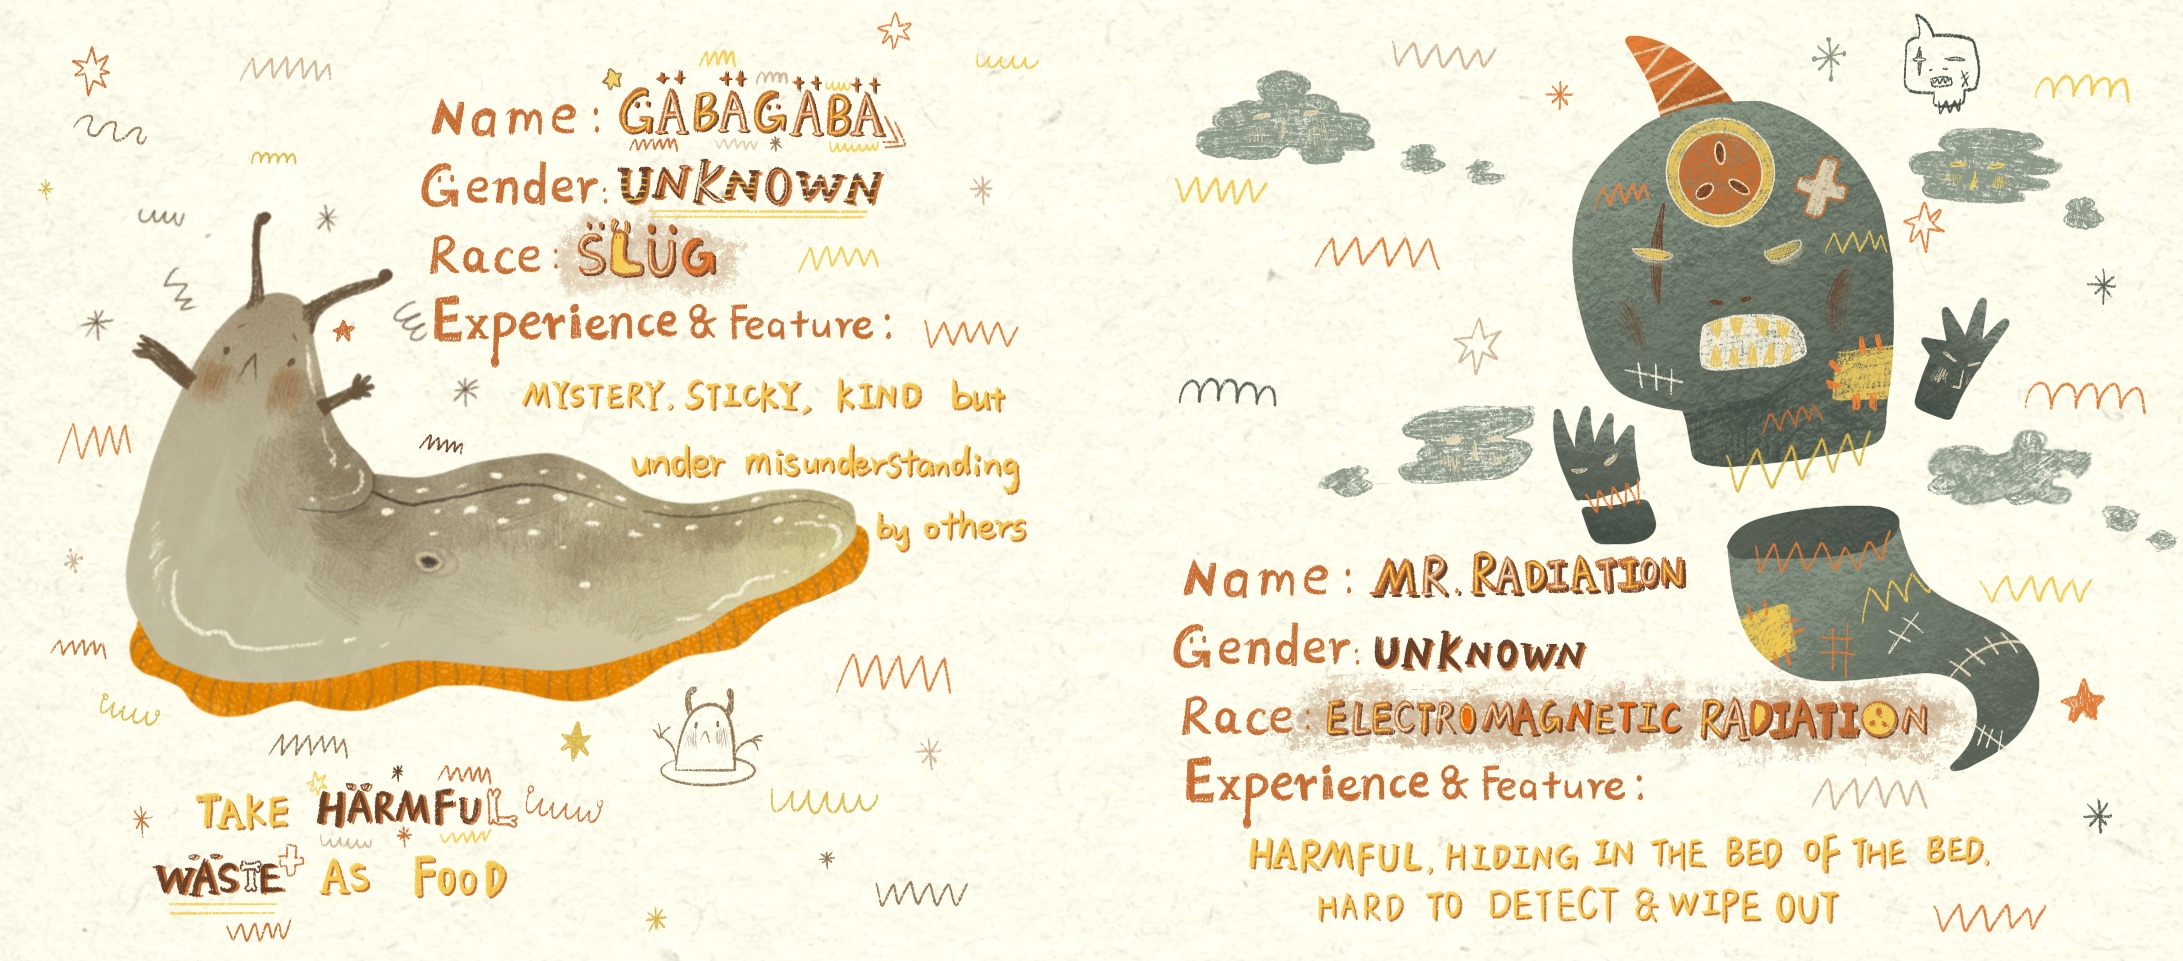 Name: GÄBÄGÄBÄ
Gender: UNKNOWN
Race: S̈LÜG
Experience & Feature:
MYSTERY, STICKY, KIND but
under misunderstanding
by others
TAKE HÄRMFUL
WÄSTE AS FOOD
Name: MR. RADIATION
Gender: UNKNOWN
Race: ELECTROMAGNETIC RADIATION
Experience & Feature:
HARMFUL, HIDING IN THE BED OF THE BED.
HARD TO DETECT & WIPE OUT